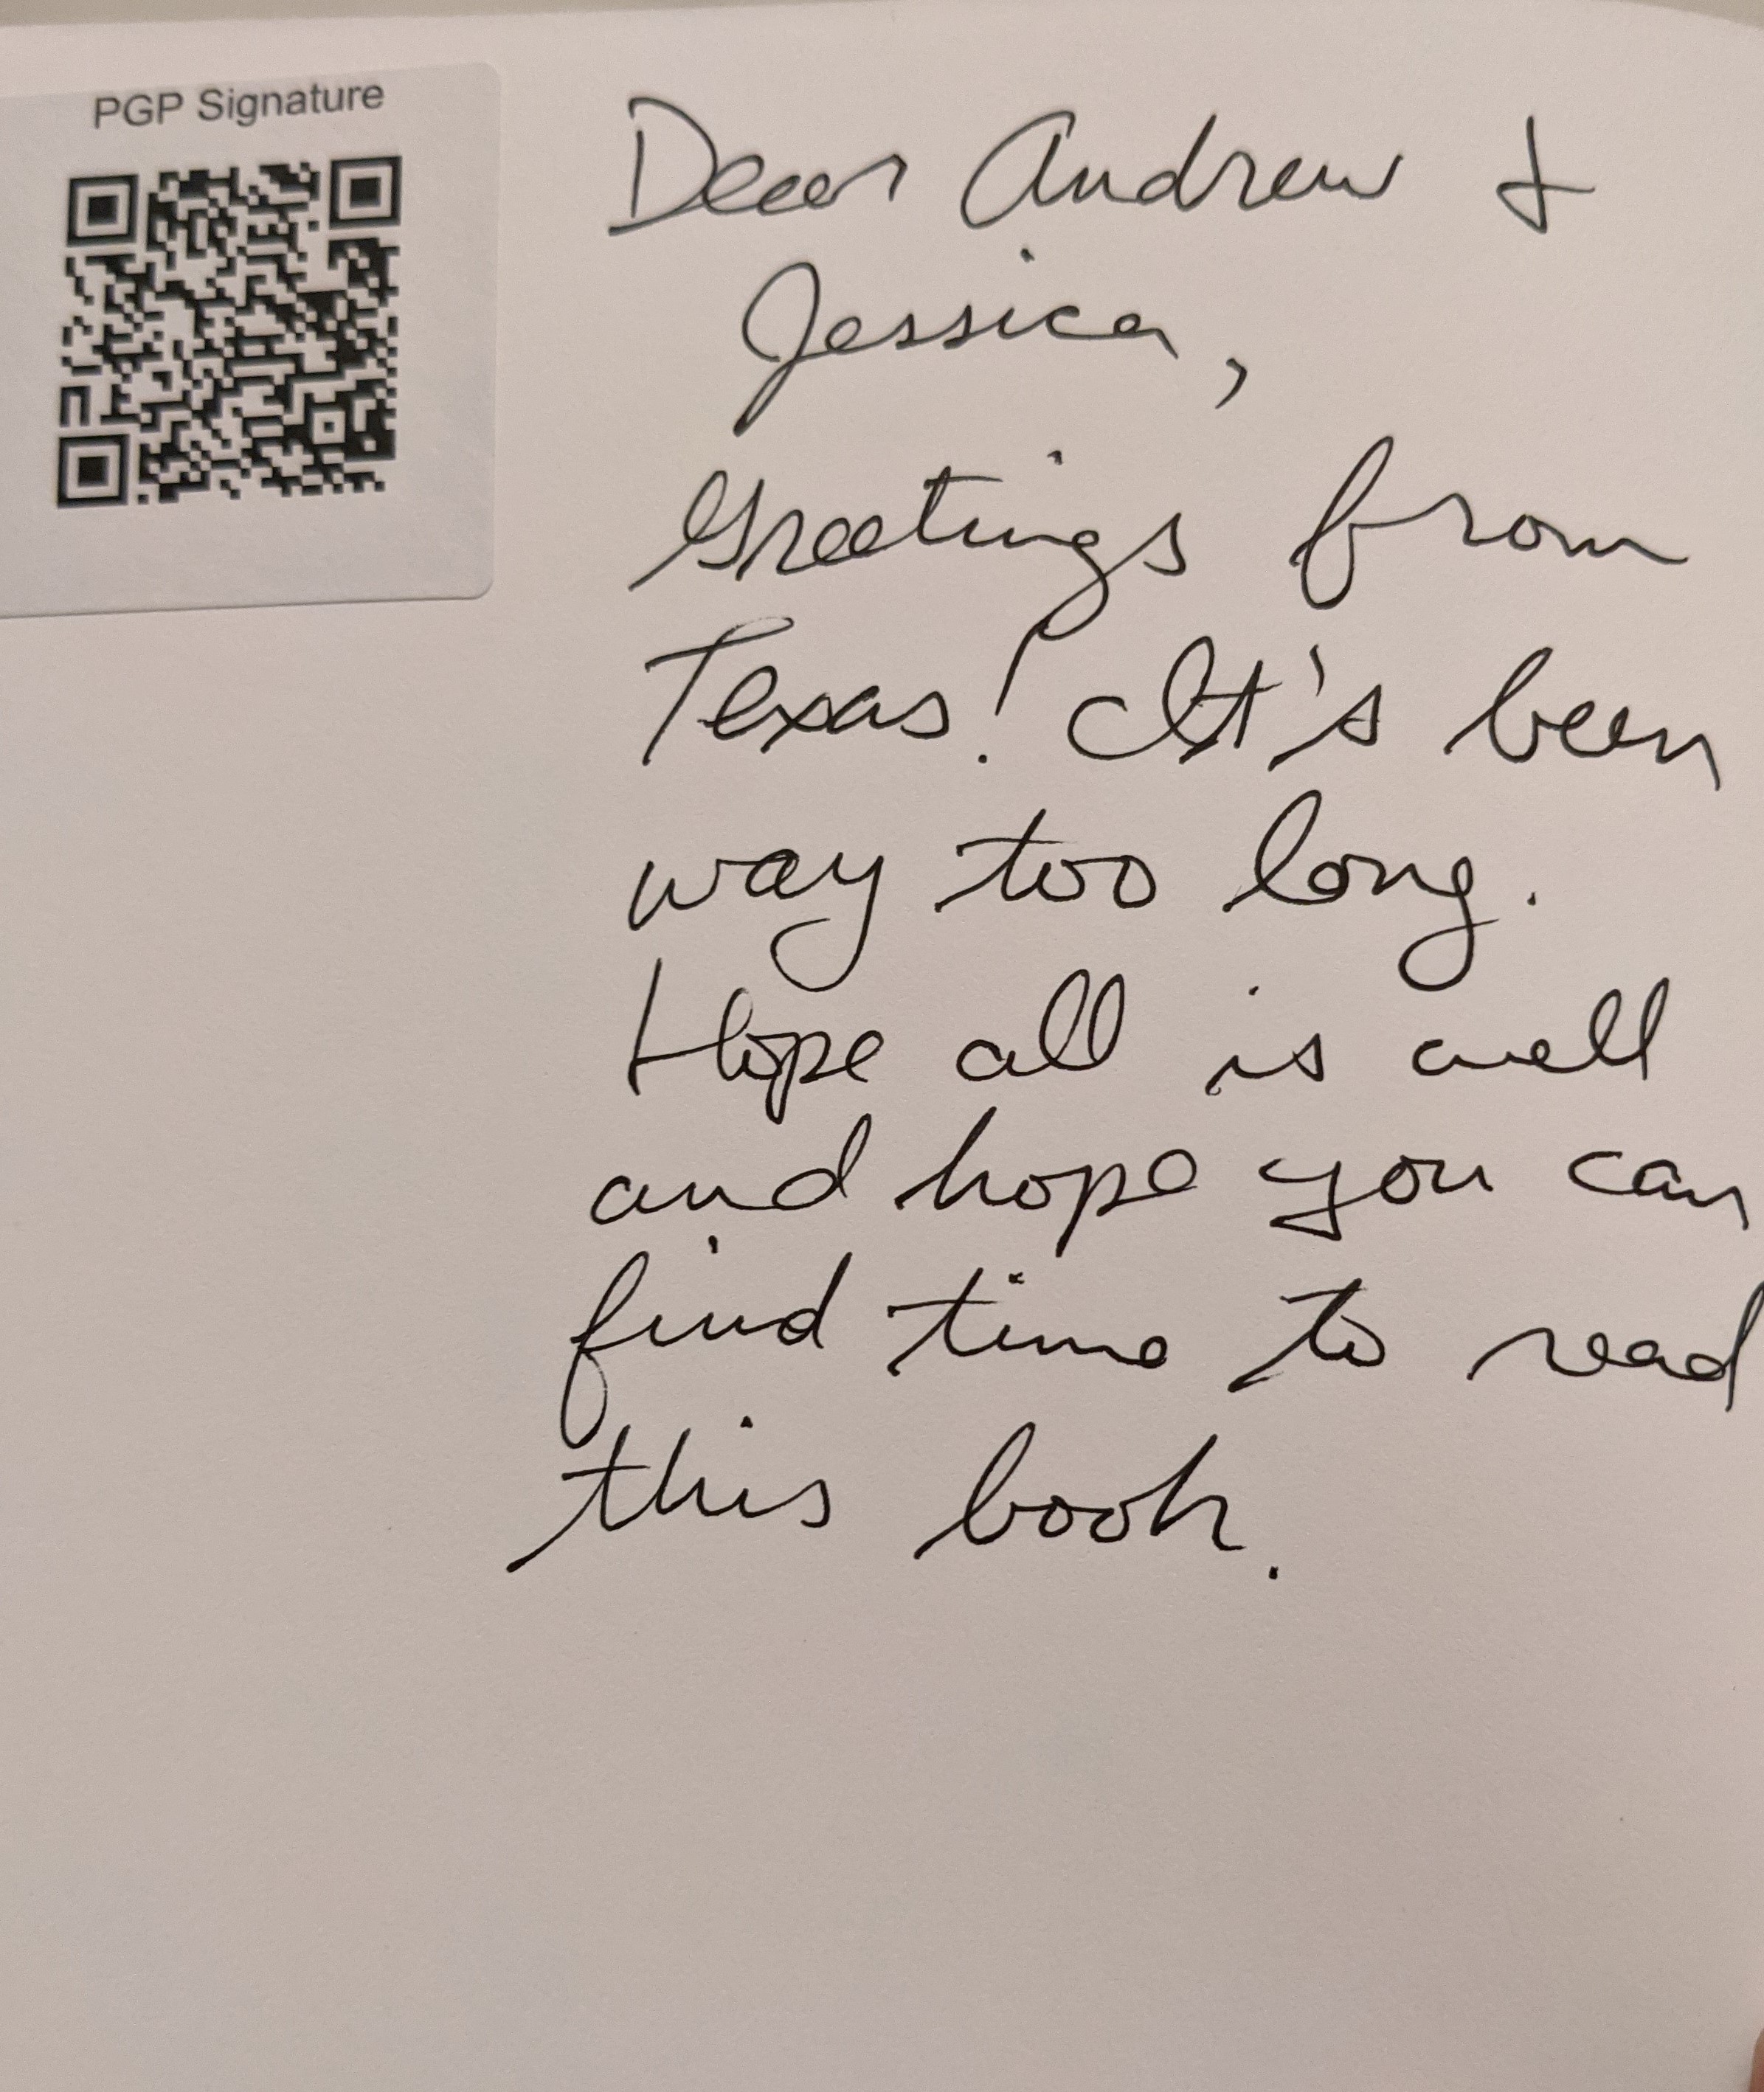 PGP Signature
Dear Andrew &
Jessica,
Greetings from
Texas! It's been
way too long.
Hope all is well
and hope you can
find time to read
this book.